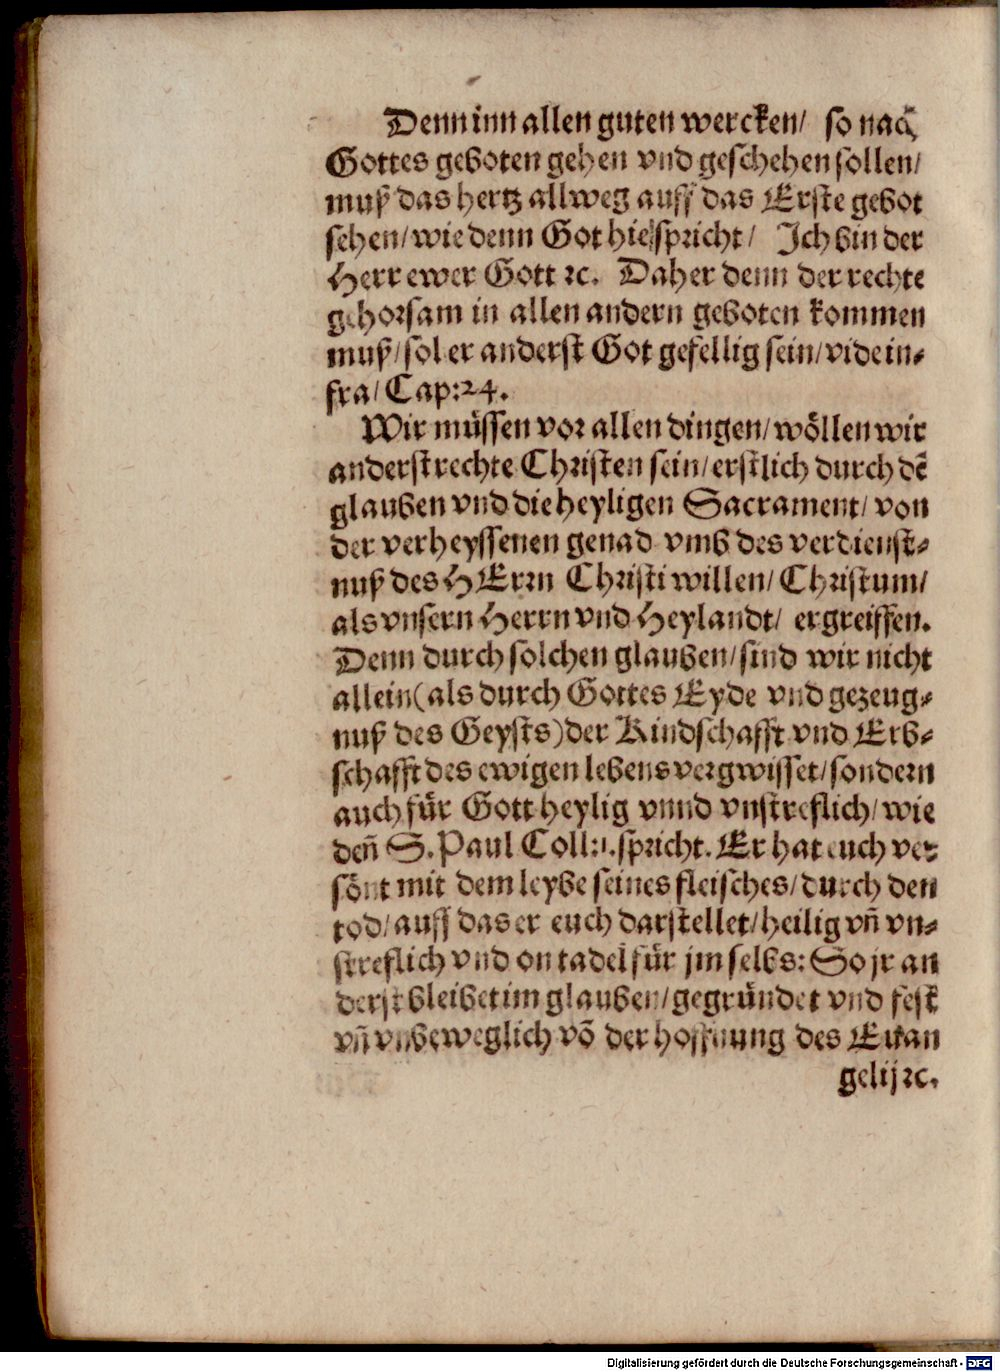 Denn inn allen guten wercken/ so nach
Gottes geboten gehen vnd geschehen sollen/
muß das hertz allweg auff das Erste gebot
sehen/ wie denn Got hie spricht/ Ich bin der
Herr ewer Gott ꝛc. Daher denn der rechte
gehorsam in allen andern geboten kommen
muß/ sol er anderst Got gefellig sein/ vide in-
fra/ Cap: 24.
Wir müssen vor allen dingen/ wöllen wir
anderst rechte Christen sein/ erstlich durch dē
glauben vnd die heyligen Sacrament/ von
der verheyssenen genad vmb des verdienst-
nuß des HErrn Christi willen/ Christum/
als vnsern Herrn vnd Heylandt/ ergreiffen.
Denn durch solchen glauben/ sind wir nicht
allein (als durch Gottes Eyde vnd gezeug-
nuß des Geysts) der Kindschafft vnd Erb-
schafft des ewigen lebens vergwisset/ sondern
auch für Gott heylig vnnd vnstreflich/ wie
deñ S. Paul Coll: 1. spricht. Er hat euch ver
sönt mit dem leybe seines fleisches/ durch den
tod/ auff das er euch darstellet/ heilig vñ vn-
streflich vnd on tadel für jm selbs: So jr an
derst bleibet im glauben/ gegründet vnd fest
vñ vnbeweglich vō der hoffnung des Euan
gelij ꝛc.
Digitalisierung gefördert durch die Deutsche Forschungsgemeinschaft - DFG